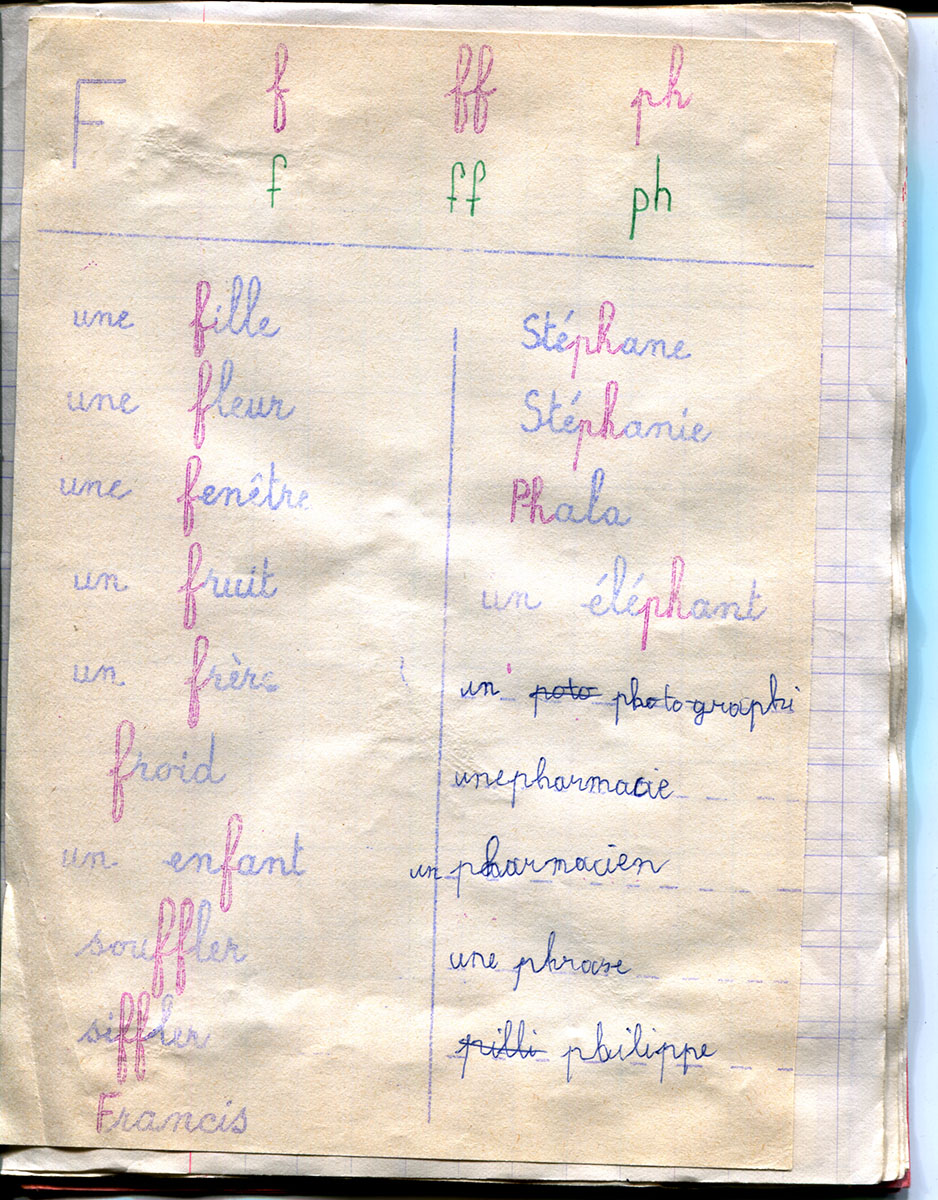 F f ff ph
f ff ph
une fille
une fleur
une fenêtre
un fruit
un frère
froid
un enfant
souffler
siffler
Francis
Stéphane
Stéphanie
Phala
un éléphant
un poto photographi
une pharmacie
un pharmacien
une phrase
pilli philippe